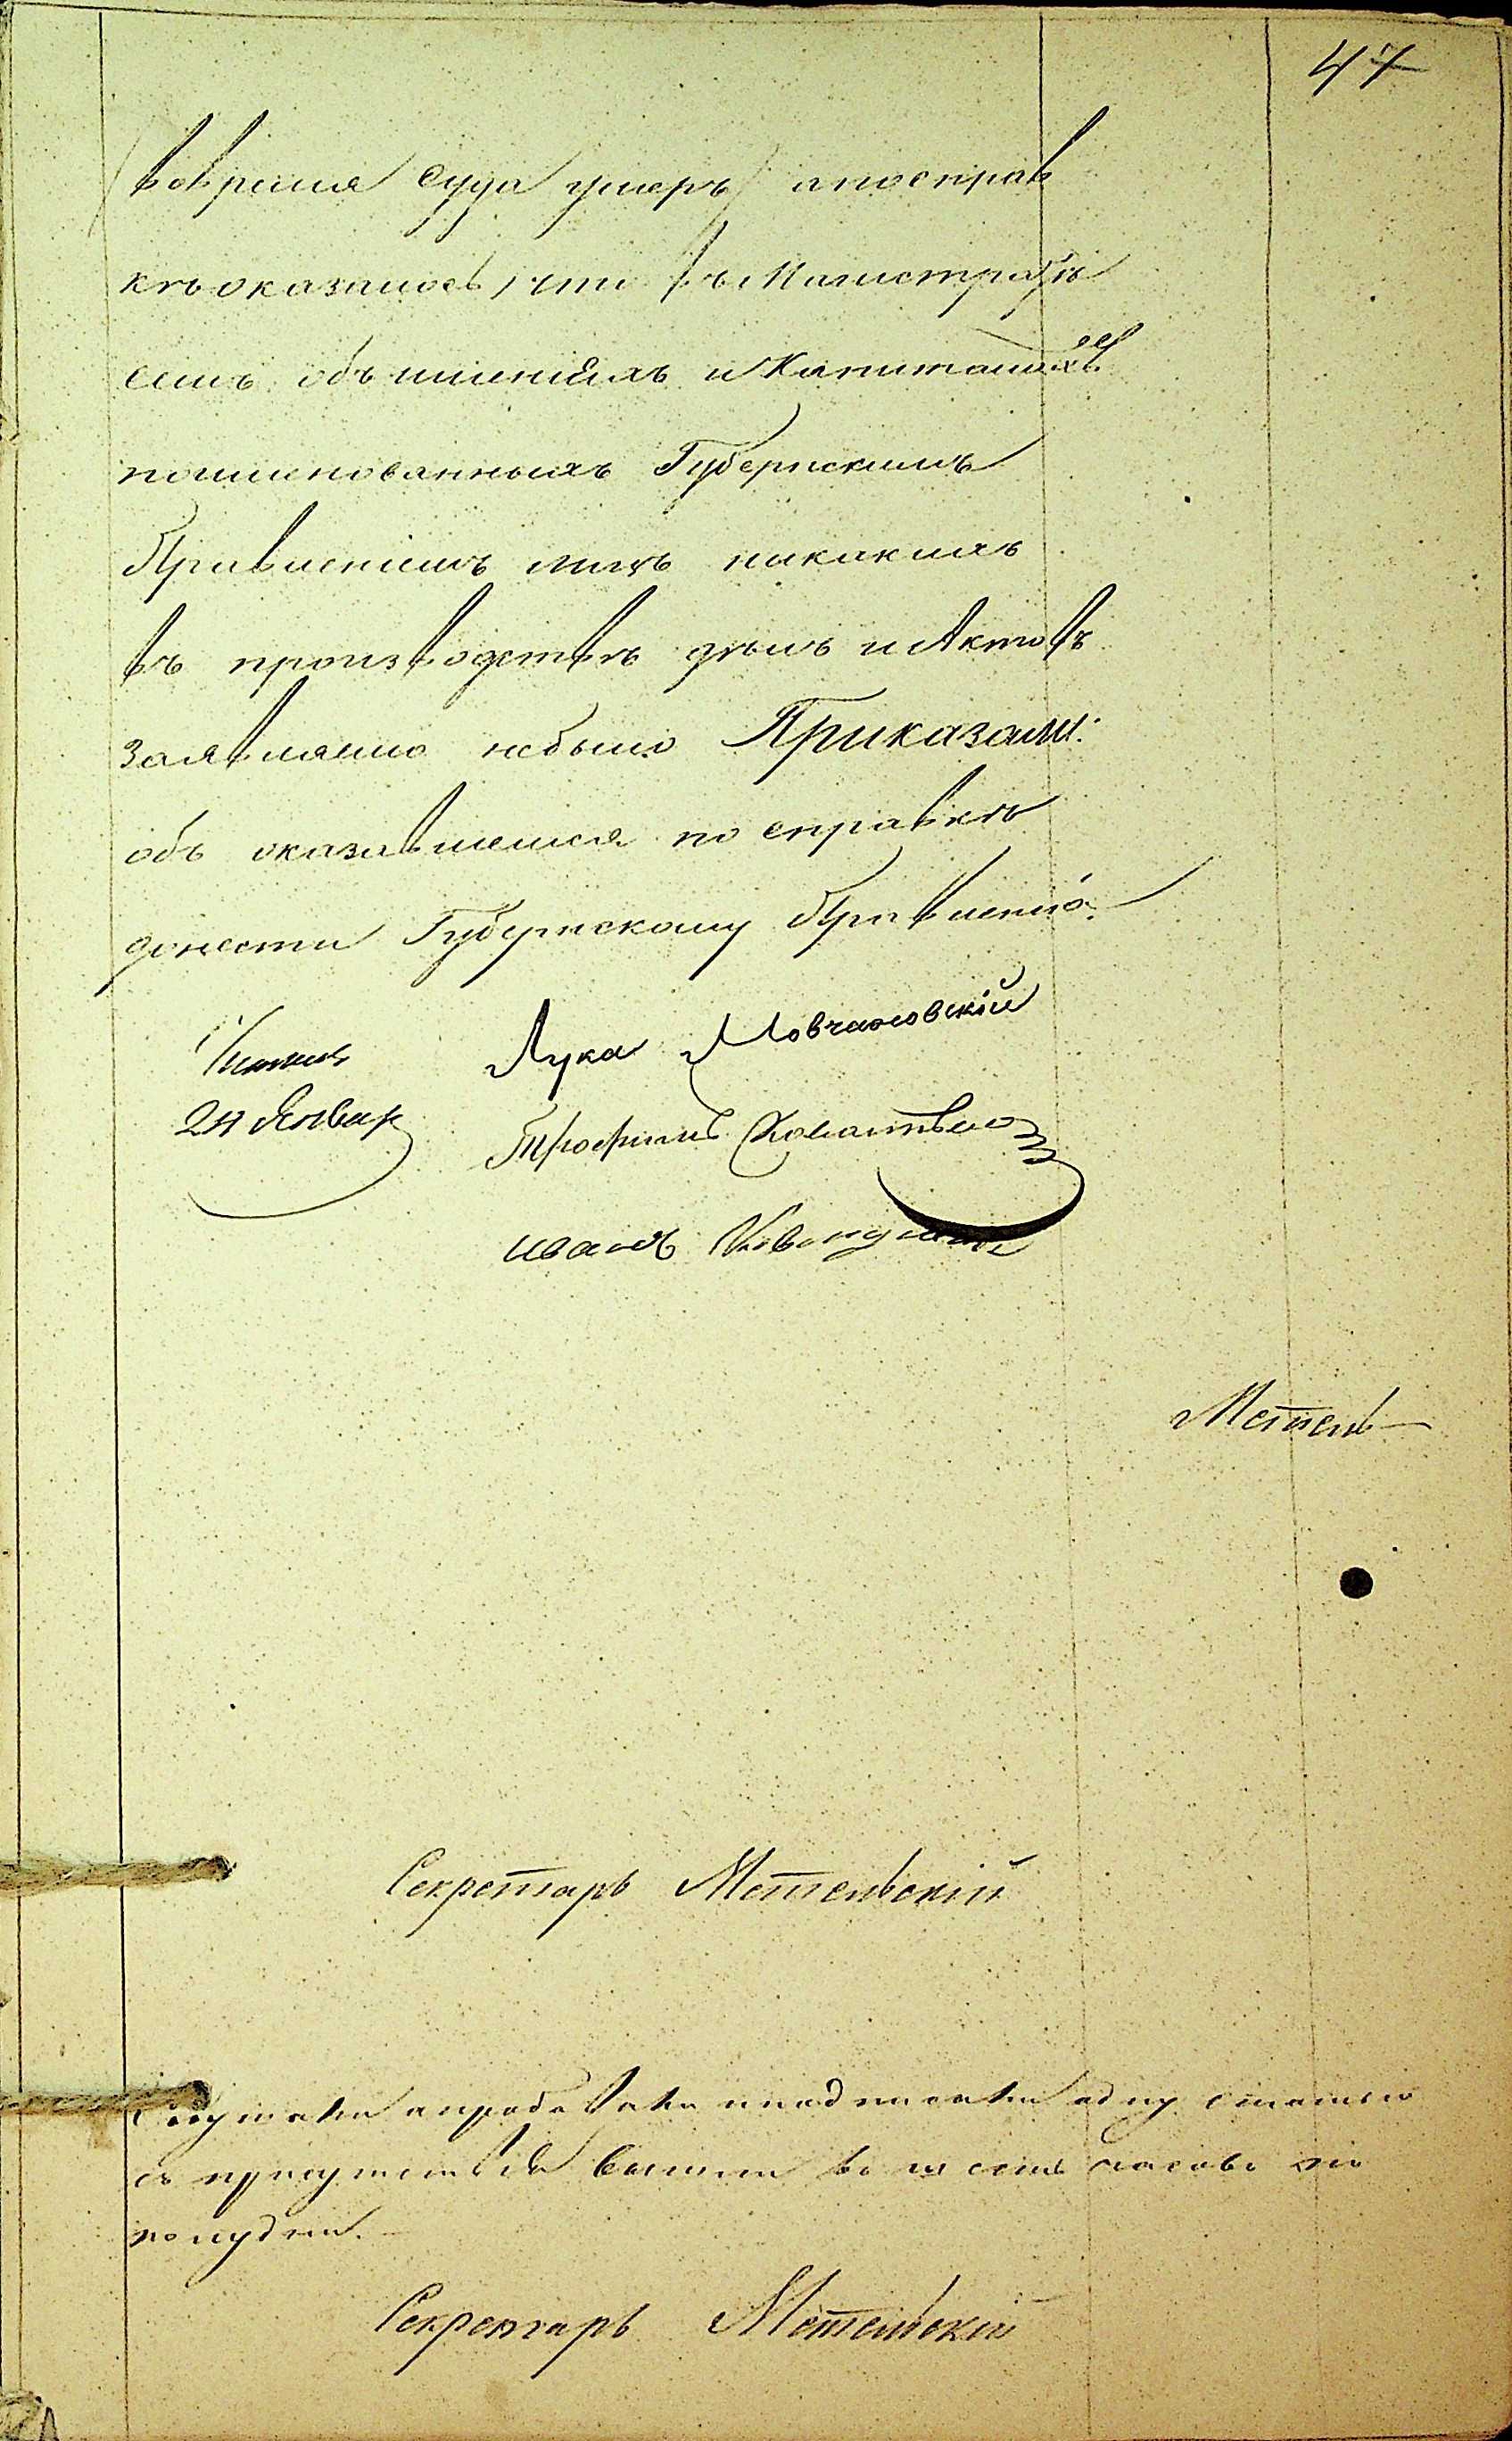 47
вовремя суда умеръ) а по справ
кѣ оказалось, что въ Магистратѣ
семъ объ имѣніяхъ и Капиталахъ
поименованныхъ Губернскимъ
Правленіемъ лицъ никакихъ
въ производствѣ дѣлъ и Актовъ
заявляемо небыло Приказали:
объ оказавшемся по справкѣ
донести Губернскому Правленію.
24 Январ
Лука Мовчановскій
Трофимъ
иванъ
Метель
Секретарь Метельскій
и подписавъ одну статью
съ присутствія вышли въ часовъ по
полудни.
Секретарь Метельскій